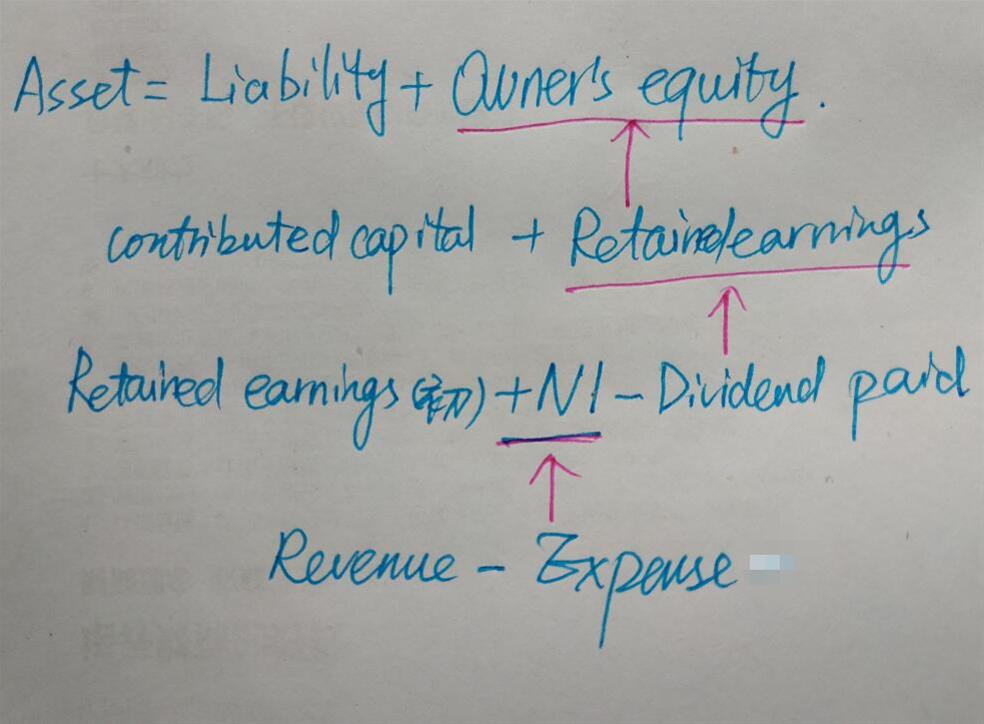 Asset = Liability + Owner's equity.
contributed capital + Retained earnings
Retained earnings (初) + NI - Dividend paid
Revenue - Expense